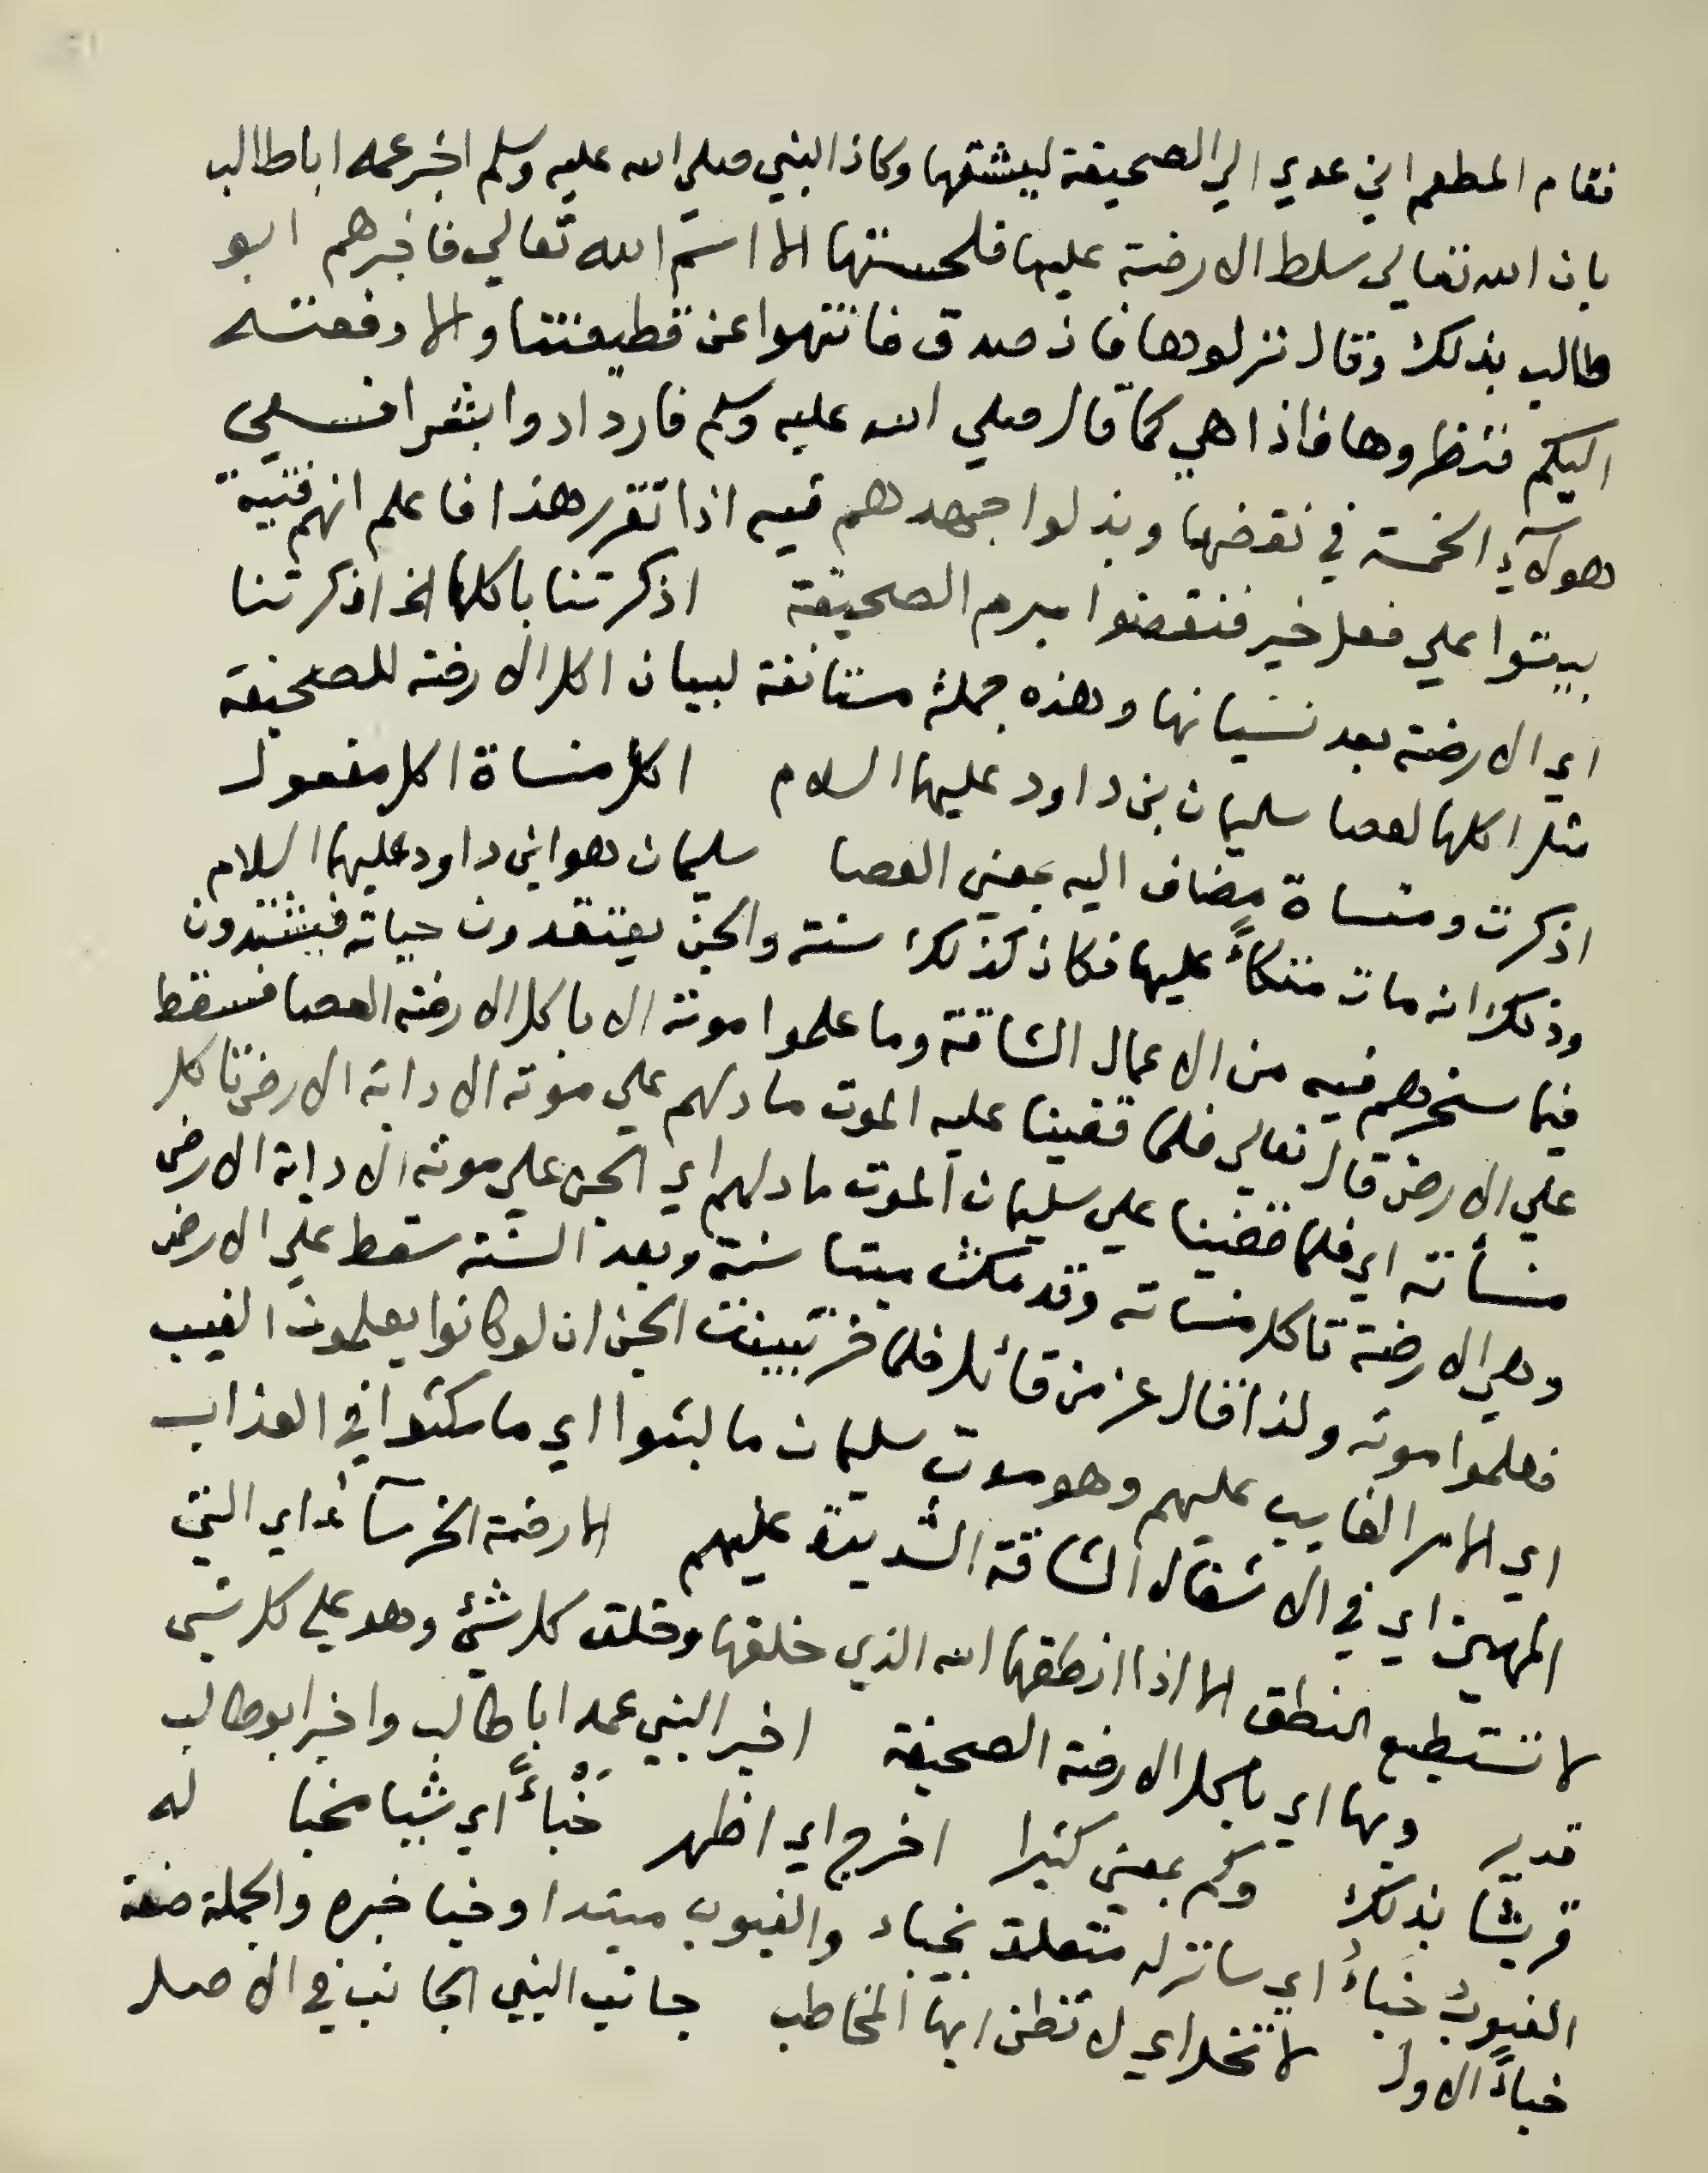 فقام المطعم ابن عدي الي الصحيفة ليشقها وكان النبي صلي الله عليه وسلم اخبر عمه اباطالب
بان الله تعالي سلط الارضة عليها فلحستها الا اسم الله تعالي فاخبرهم ابو
طالب بذلك وقال نزلوها فان صدق فانتهوا عن قطيعتنا والا دفعته
اليكم فنظروها فاذا هي كما قال صلي الله عليه وسلم فازدادوا بشرا فسعي
هولآء الخمسة في نقضها وبذلوا جهدهم فيه اذا تقرر هذا فاعلم انهم فتية
بيتوا علي فعل خير فنقضوا مبرم الصحيفة اذكرتنا باكلها الخ اذكرتنا
اي الارضة بعد نسيانها وهذه جملة مستانفة لبيان اكل الارضة للصحيفة
مثل اكلها لعصا سليمان بن داود عليهما السلام اكل منساة اكل مفعول
اذكرت ومنساة مضاف اليه بمعني العصا سليمان هو ابن داود عليهما السلام
وذلك انه مات متكاً عليها فكان كذلك سنة والجن يعتقدون حياته فيشتدون
فيما سخرهم فيه من الاعمال الشاقة وما علموا موته الا باكل الارضة العصا فسقط
علي الارض قال تعالي فلما قضينا عليه الموت ما دلهم علي موته الا دابة الارض تاكل
منسأته اي فلما قضينا علي سليمان الموت ما دلهم اي الجن علي موته الا دابة الارض
وهي الارضة تاكل منساته وقد مكث ميتا سنة وبعد السنة سقط علي الارض
فعلموا موته ولذا قال عز من قائل فلما خر تبينت الجن ان لو كانوا يعلمون الغيب
اي الامر الغايب عليهم وهو موت سليمان ما لبثوا اي ما مكثوا في العذاب
المهين اي في الاشغال الشاقة الشديدة عليهم الارضة الخرسآء اي التي
لا تستطيع النطق الا اذا انطقها الله الذي خلقها وخلق كل شئ وهو علي كل شي
قدير وبها اي باكل الارضة الصحيفة اخبر النبي عمه اباً طالب واخبر ابو طالب
قريشا بذلك وكم بمعني كثيرا اخرج اي اظهر خَبْاءً اي شيا مخبا له
الغيوبُ خباءُ اي ساتر له متعلق بخباء والغيوب مبتدا وخبا خبره والجملة صفة
خباءً الاول لا تخل اي لا تظن ايها المخاطب جانب النبي الجانب في الاصل